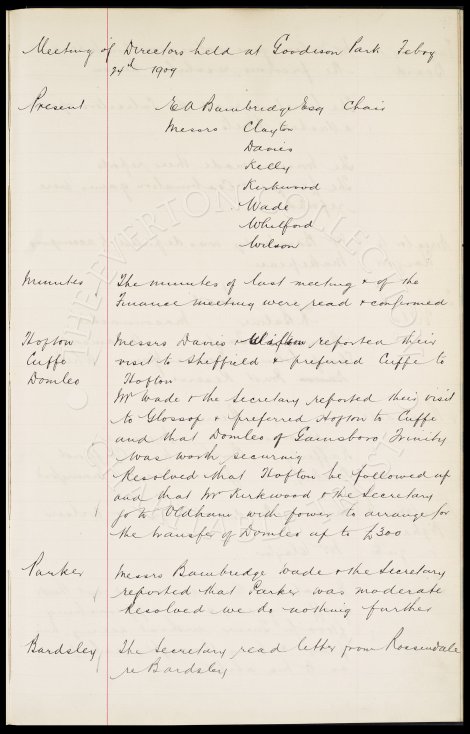 Meeting of Directors held at Goodison Park Feby
24th 1909
Present E A Bainbridge Esq Chair
Messrs Clayton
Davies
Kelly
Kirkwood
Wade
Whitford
Wilson
Minutes The minutes of last meeting & of the
Finance meeting were read & confirmed
Hofton Messrs Davies & reported their
Cuffe visit to Sheffield & preferred Cuffe to
Domleo Hofton
Mr Wade & the Secretary reported their visit
to Glossop & preferred Hofton to Cuffe
and that Domleo of Gainsboro Trinity
was worth securing
Resolved that Hofton be followed up
and that Mr Kirkwood & the Secretary
go to Oldham with power to arrange for
the transfer of Domleo up to £300
Parker Messrs Bainbridge Wade & the Secretary
reported that Parker was moderate
Resolved we do nothing further
Bardsley The Secretary read letter from Rossendale
re Bardsley
THE EVERTON COLLECTION